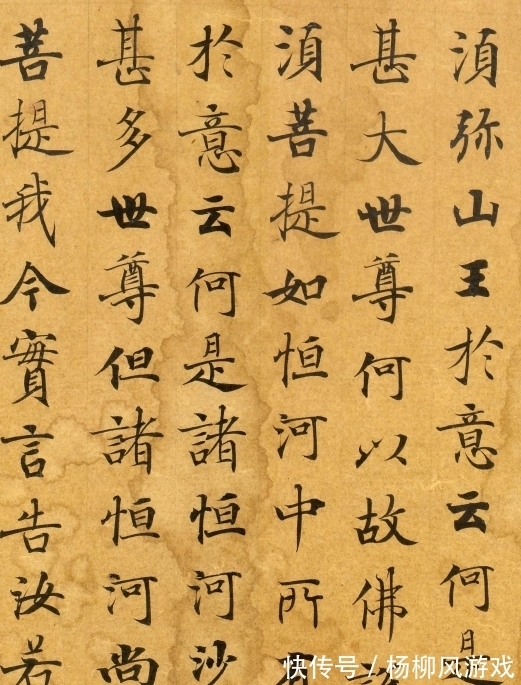 湏弥山王於意云何是
甚大世尊何以故佛
湏菩提如恒河中所
於意云何是諸恒河沙
甚多世尊但諸恒河尚
菩提我今實言告汝若
快传号 / 杨柳风游戏